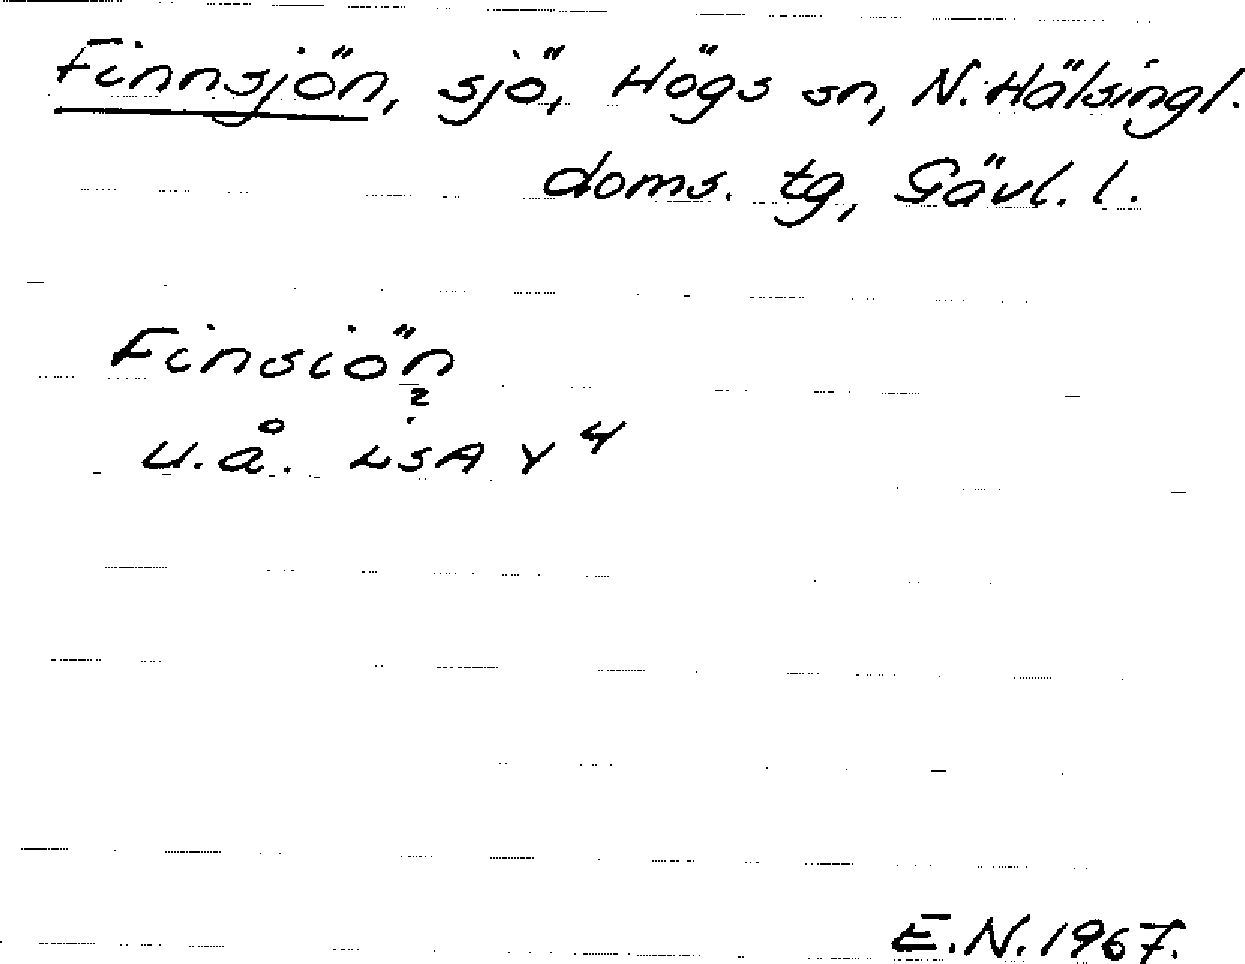 Finnsjön, sjö, Högs sn, N. Hälsingl.
doms. tg, Gävl. l.
Finsiön
u.å. LSA Y 4
E.N. 1967.